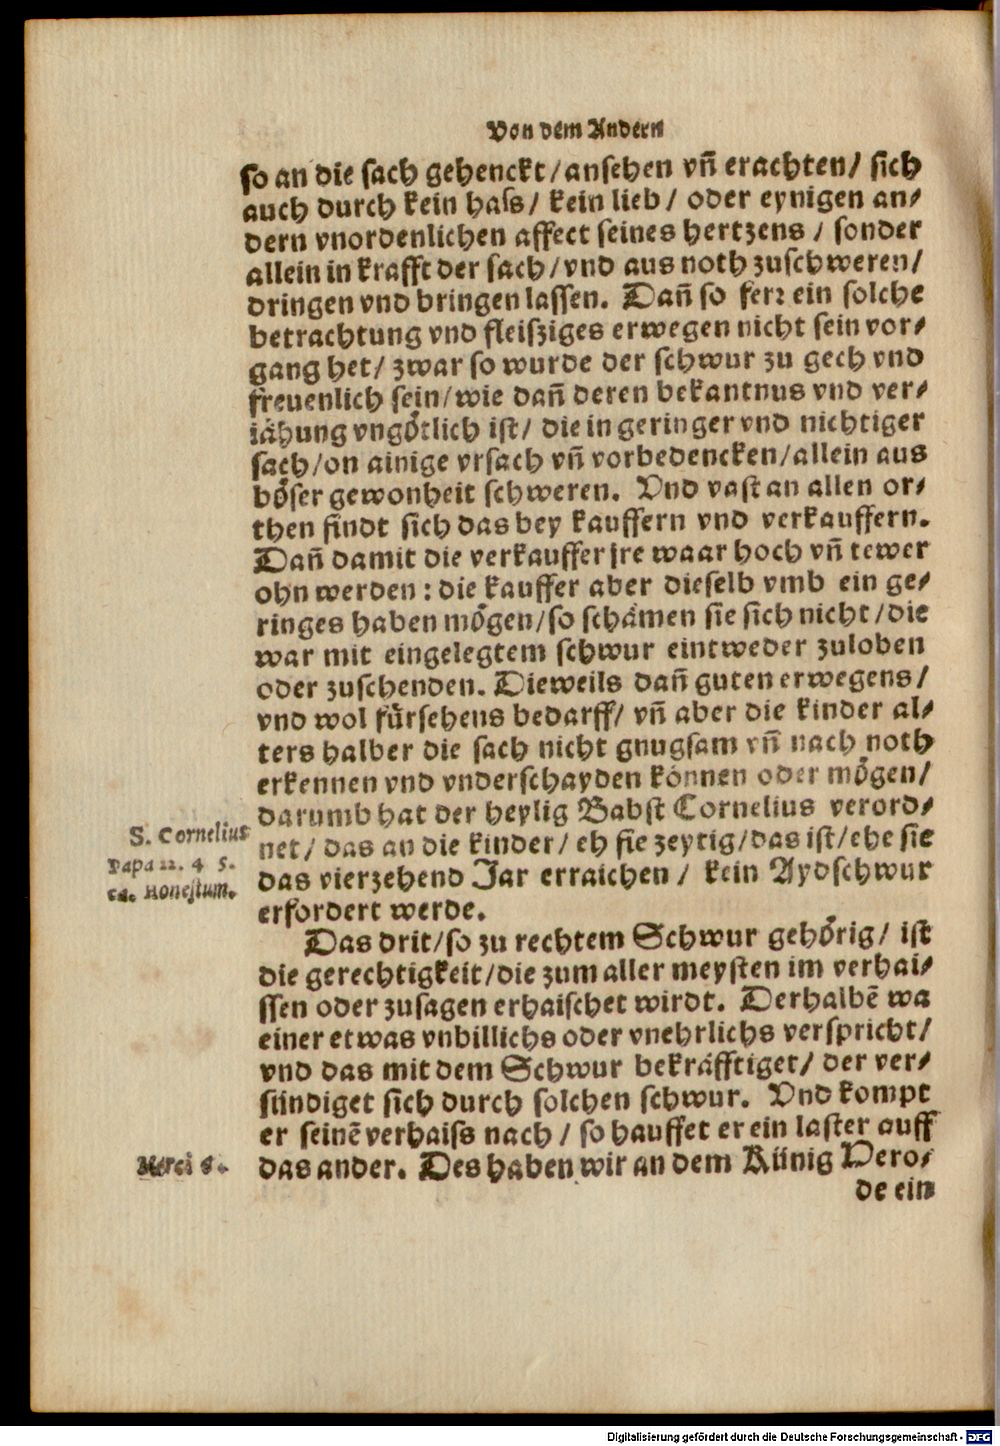 Von dem Andern
so an die sach gehenckt/ansehen vñ erachten/ sich
auch durch kein hass/ kein lieb/ oder eynigen an-
dern vnordenlichen affect seines hertzens / sonder
allein in krafft der sach/vnd aus noth zuschweren/
dringen vnd bringen lassen. Dañ so ferꝛ ein solche
betrachtung vnd fleisziges erwegen nicht sein vor-
gang het/ zwar so wurde der schwur zu gech vnd
freuenlich sein/wie dañ deren bekantnus vnd ver-
iähung vngötlich ist/ die in geringer vnd nichtiger
sach/on ainige vrsach vñ vorbedencken/allein aus
böser gewonheit schweren. Vnd vast an allen or-
then findt sich das bey kauffern vnd verkauffern.
Dañ damit die verkauffer jre waar hoch vñ tewer
ohn werden : die kauffer aber dieselb vmb ein ge-
ringes haben mögen/so schämen sie sich nicht/die
war mit eingelegtem schwur eintweder zuloben
oder zuschenden. Dieweils dañ guten erwegens/
vnd wol fürsehens bedarff/ vñ aber die kinder al-
ters halber die sach nicht gnugsam vñ nach noth
erkennen vnd vnderschayden können oder mögen/
darumb hat der heylig Babst Cornelius verord-
net/ das an die kinder/ eh sie zeytig/das ist/ehe sie
das vierzehend Jar erraichen / kein Aydschwur
erfordert werde.
S. Cornelius
Papa 22. q 5.
ca. Honestum.
Das drit/so zu rechtem Schwur gehörig/ ist
die gerechtigkeit/die zum aller meysten im verhai-
ssen oder zusagen erhaischet wirdt. Derhalbē wa
einer etwas vnbillichs oder vnehrlichs verspricht/
vnd das mit dem Schwur bekräfftiget/ der ver-
sündiget sich durch solchen schwur. Vnd kompt
er seinē verhaiss nach / so hauffet er ein laster auff
das ander. Des haben wir an dem Künig Hero-
Marci 6.
de ein
Digitalisierung gefördert durch die Deutsche Forschungsgemeinschaft - DFG